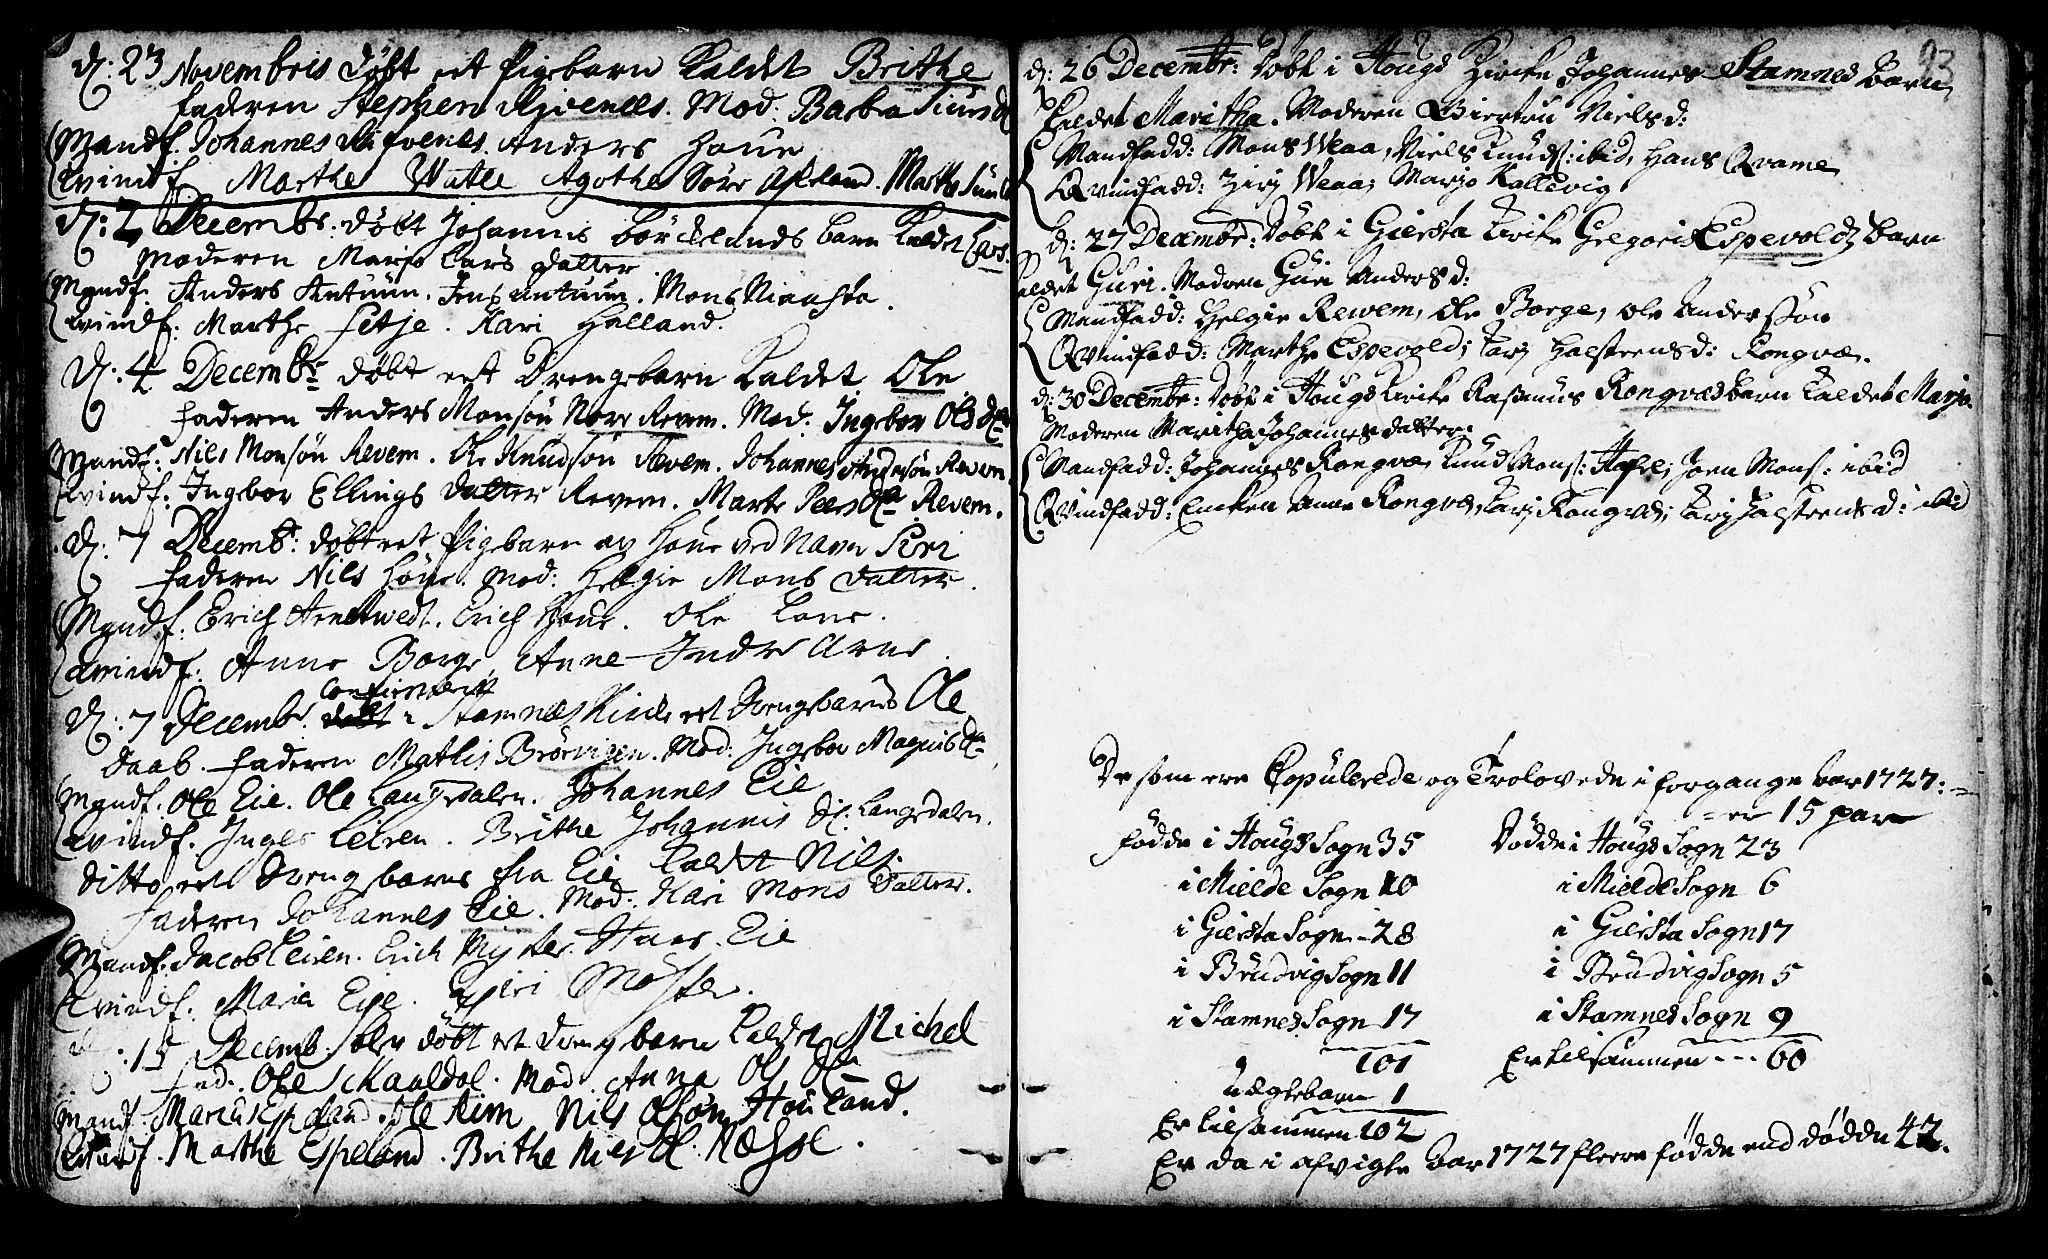 d: 23 Novembris døbt eet Pigebarn kaldet Brithe
Faderen Stephen. Mod: Barbra Siurs d
Mandf. Johannes. Anders Houe
Qvindf. Marthe Vatle Agothe Søre. Marthe
d: 2 Decembr. døbt Johannis Børcklands barn kaldet Lars.
Moderen Marjo Lars datter
Mandf. Anders Antuun. Jens Antuun. Mons.
Qvindf: Marthe Setje. Kari Halland.
d: 4 Decembr døbt eet Drengebarn kaldet Ole
Faderen Anders Monsøn Nore Revem. Mod: Ingebor Ols dr
Mandf: Nils Monsøn Revem. Ole Knudsøn Revem. Johannes Andersøn Revem
Qvindf. Ingebor Ellings datter Revem. Marte Peers dr Revem.
d. 7 Decembr: døbt eet Pigebarn av Houe ved Navn Siri
Faderen Nils Houe. Mod: Helgie Mons datter.
Mandf: Erich Arnetvedt. Erich Houe. Ole Lone.
Qvindf: Anne Borge. Anne Indre Arne.
confirmerit
d: 7 Decembr døbt i Stamnes Kirke eet Drengebarns Ole
Daab. Faderen Mathis Brørvigen. Mod: Ingebor Magnis dr
Mandf. Ole Eie. Ole Langedalen. Johannes Eie
Qvindf. Inger Leiren. Brithe Johannis dr. Langedalen.
Ditto eet Drengebarns fra Eie kaldet Nils.
Faderen Johannes Eie. Mod: Kari Mons datter.
Mandf: Jacob Leiren. Erich. Hans. Eie
Qvindf. Maria Eie. Siri Møster.
d: 15 Decemb: blev døbt et Drengbarn kaldet Michel
Fad. Ole Skauldal. Mod. Anna Ols dr
Mandf. Marcus Espeland. Ole Rim Nils Olsøn Houland.
Qvindf. Marthe Espeland. Brithe Niels d. Næsse.
93
d: 26 Decembr: Døbt i Hougs Kirke Johannes Stamnes Barn
kaldet Maritha. Moderen Giertru Nielsd:
Mandfadd: Mons Weaa, Niels Knuds: ibid, Hans Qvame
Qvindfadd: Weaa; Marjo Kallevig
d: 27 Decembr: Døbt i Giersta Kirke Gregoris Espevolds Barn
kaldet Guri. Modren Guri Andersd:
Mandfadd: Helgie Rewem, Ole Borge, Ole Anderssøn
Qvindfadd: Marthe Espevold; Halsteensd: Rongvæ.
d: 30 Decembr: Døbt i Hougs Kirke Rasmus Rongvæs Barn kaldet Marjo.
Moderen Maritha Johannesdatter.
Mandfadd: Johannes Rongvæ, Knud Mons: Hafre; Joen Mons: ibid
Qvindfadd: Enken Anne Rongvæ, Rongvæ; Halsteensd: ibid
De som ere Copulerede og Trolovede i forgangne Aar 1727:
er 15 par
Fødde i Hougs Sogn 35
i Mielde Sogn 10
i Giersta Sogn 28
i Brudvig Sogn 11
i Stamnes Sogn 17
101
Uægtebarn 1
Er tilsammen 102
Dødde i Hougs Sogn 23
i Mielde Sogn 6
i Giersta Sogn 17
i Brudvig Sogn 5
i Stamnes Sogn 9
Er tilsammen --- 60
Er da i afvigte Aar 1727 fleere fødde end dødde 42.